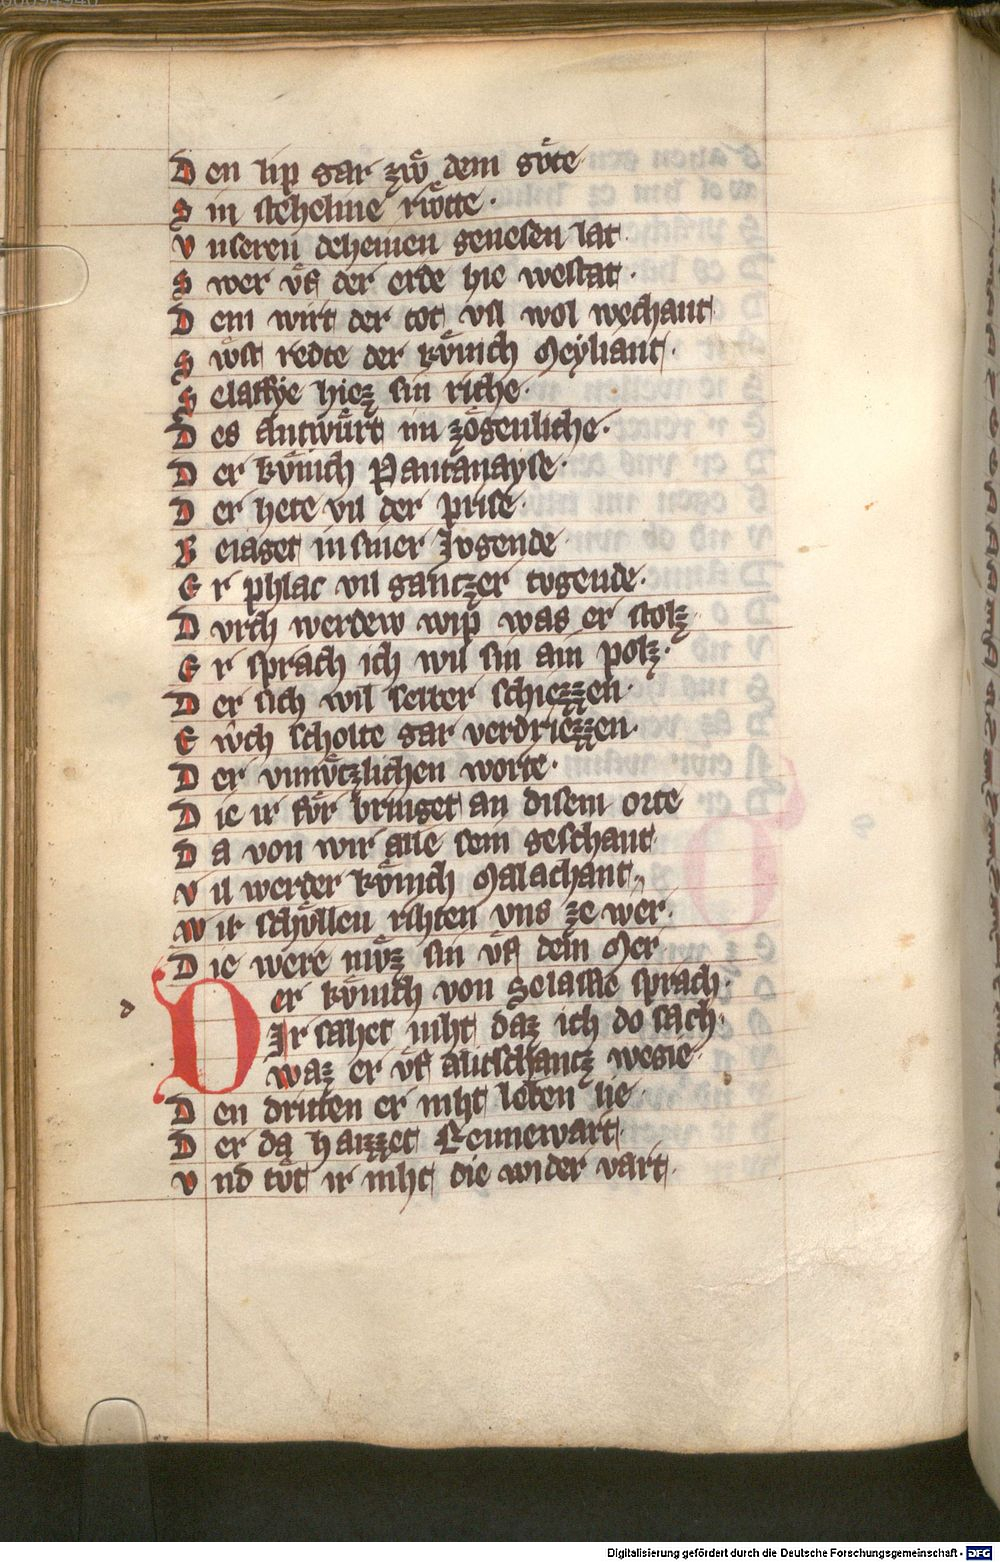 Den lip gar zwͦ dem gvͦte
Sin steheline rvͦtte ·
Vnseren deheinen genesen lat
Swer vͤf der erde hie westat ·
Dem wirt der tot vil wol wechant
Swͤst redte der kvͤnich Meyliant ·
Selaffye hiez sin riche ·
Des antwuͤrt im zoͤgenliche ·
Der kvͤnich Pantanayse ·
Der hete vil der prise ·
Beiaget in siner Ivgende
Er phlac vil ganczer tvgende ·
Dvrch werdew wip was er stolz
Er sprach ich wil sin ain polz ·
Der sich wil selter schiezzen ·
Ewch scholte gar verdriezzen ·
Der vnnvͤtzlichen worte ·
Die ir fvͤr bringet an disem orte
Da von wir alle sein geschant
Vil werder kvͤnich Malachant
Wir schoͤllen richten vns ze wer ·
Die were mvͤz sin vͤf dem Mer
d
Der kvͤnich von Selaffie sprach ·
Ir sahet niht daz ich do sach ·
Waz er vͤf alitschantz wegie ·
Den dritten er niht leben lie ·
Der da haizzet Rennewart ·
Vnd tvͤt ir niht die wider vart ·
Digitalisierung gefördert durch die Deutsche Forschungsgemeinschaft - DFG